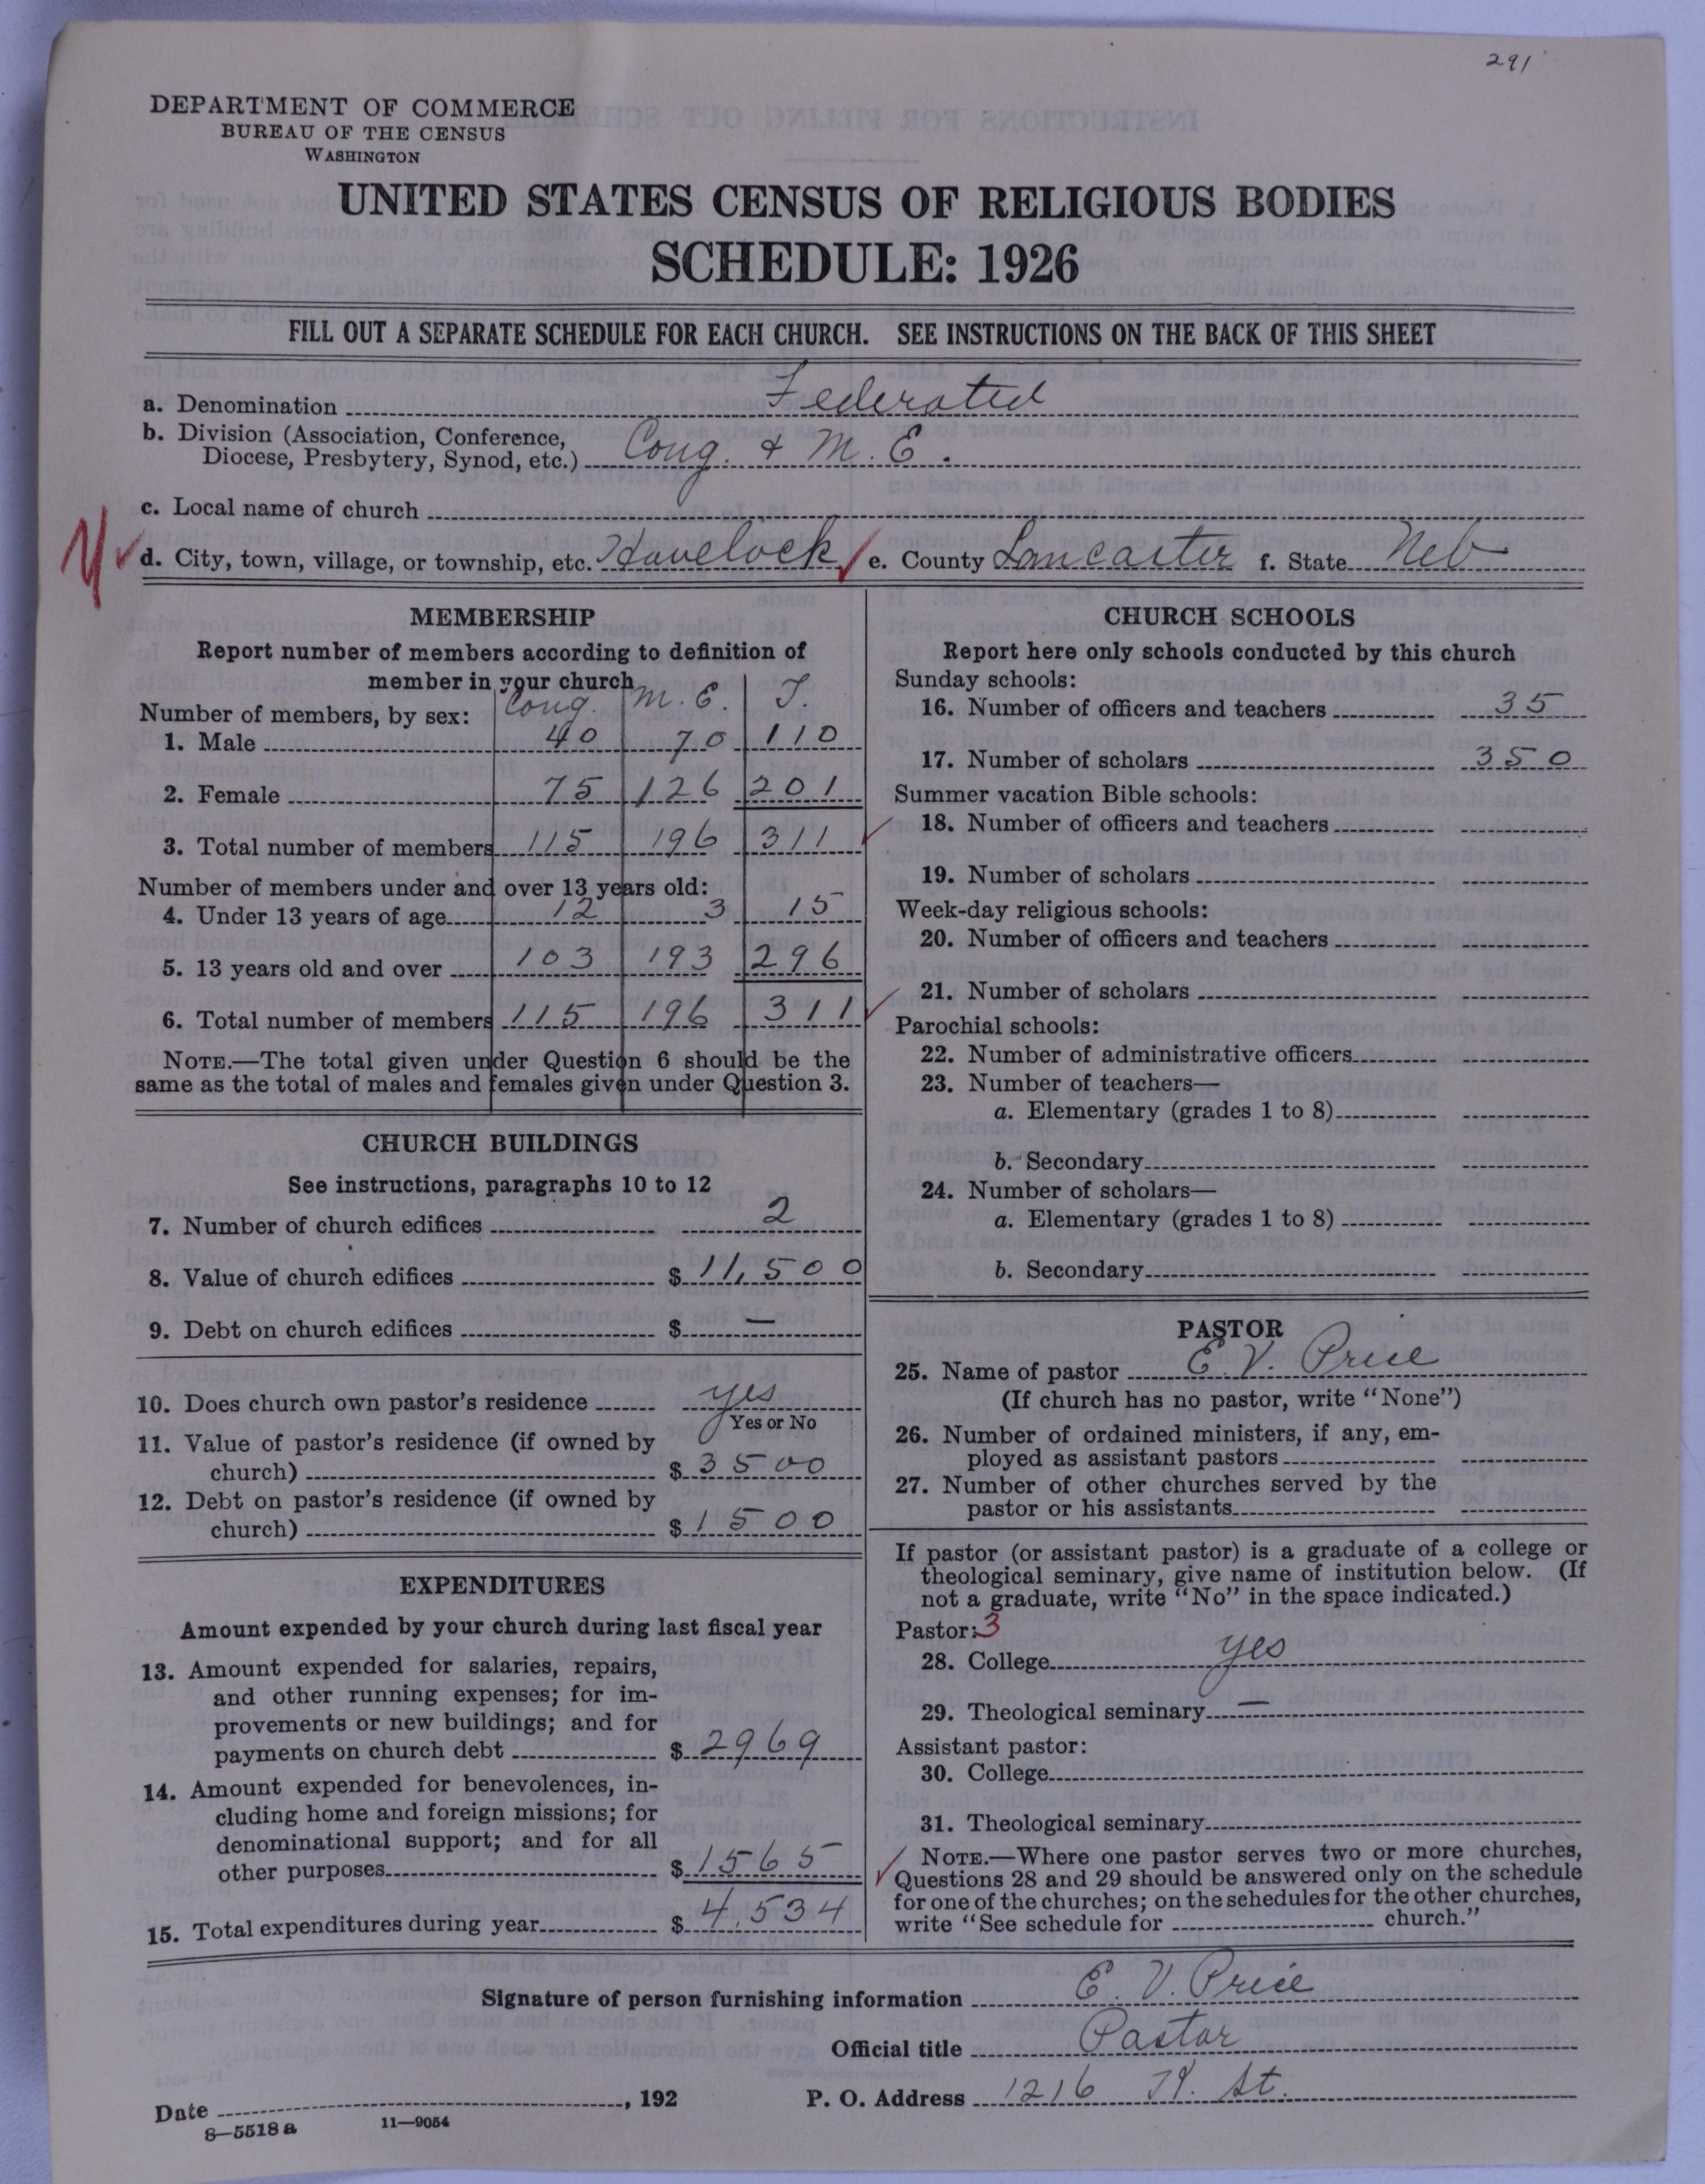 291
DEPARTMENT OF COMMERCE
BUREAU OF THE CENSUS
WASHINGTON
UNITED STATES CENSUS OF RELIGIOUS BODIES
SCHEDULE: 1926
FILL OUT A SEPARATE SCHEDULE FOR EACH CHURCH. SEE INSTRUCTIONS ON THE BACK OF THIS SHEET
a. Denomination Federated
b. Division (Association, Conference,
Diocese, Presbytery, Synod, etc.) Cong. & M. E.
c. Local name of church
d. City, town, village, or township, etc. Havelock e. County Lancaster f. State Neb
MEMBERSHIP
Report number of members according to definition of
member in your church
Number of members, by sex: Cong. M. E. T.
1. Male 40 70 110
2. Female 75 126 201
3. Total number of members 115 196 311
Number of members under and over 13 years old:
4. Under 13 years of age 12 3 15
5. 13 years old and over 103 193 296
6. Total number of members 115 196 311
NOTE.—The total given under Question 6 should be the
same as the total of males and females given under Question 3.
CHURCH BUILDINGS
See instructions, paragraphs 10 to 12
7. Number of church edifices 2
8. Value of church edifices $ 11,500
9. Debt on church edifices $ —
10. Does church own pastor's residence yes
Yes or No
11. Value of pastor's residence (if owned by
church) $ 3500
12. Debt on pastor's residence (if owned by
church) $ 1500
EXPENDITURES
Amount expended by your church during last fiscal year
13. Amount expended for salaries, repairs,
and other running expenses; for im-
provements or new buildings; and for
payments on church debt $ 2969
14. Amount expended for benevolences, in-
cluding home and foreign missions; for
denominational support; and for all
other purposes $ 1565
15. Total expenditures during year $ 4,534
CHURCH SCHOOLS
Report here only schools conducted by this church
Sunday schools:
16. Number of officers and teachers 35
17. Number of scholars 350
Summer vacation Bible schools:
18. Number of officers and teachers
19. Number of scholars
Week-day religious schools:
20. Number of officers and teachers
21. Number of scholars
Parochial schools:
22. Number of administrative officers
23. Number of teachers—
a. Elementary (grades 1 to 8)
b. Secondary
24. Number of scholars—
a. Elementary (grades 1 to 8)
b. Secondary
PASTOR
25. Name of pastor E. V. Price
(If church has no pastor, write "None")
26. Number of ordained ministers, if any, em-
ployed as assistant pastors
27. Number of other churches served by the
pastor or his assistants
If pastor (or assistant pastor) is a graduate of a college or
theological seminary, give name of institution below. (If
not a graduate, write "No" in the space indicated.)
Pastor: 3
28. College yes
29. Theological seminary —
Assistant pastor:
30. College
31. Theological seminary
NOTE.—Where one pastor serves two or more churches,
Questions 28 and 29 should be answered only on the schedule
for one of the churches; on the schedules for the other churches,
write "See schedule for church."
Signature of person furnishing information E. V. Price
Official title Pastor
Date , 192 P. O. Address 1216 St.
8—5518 a 11—9054